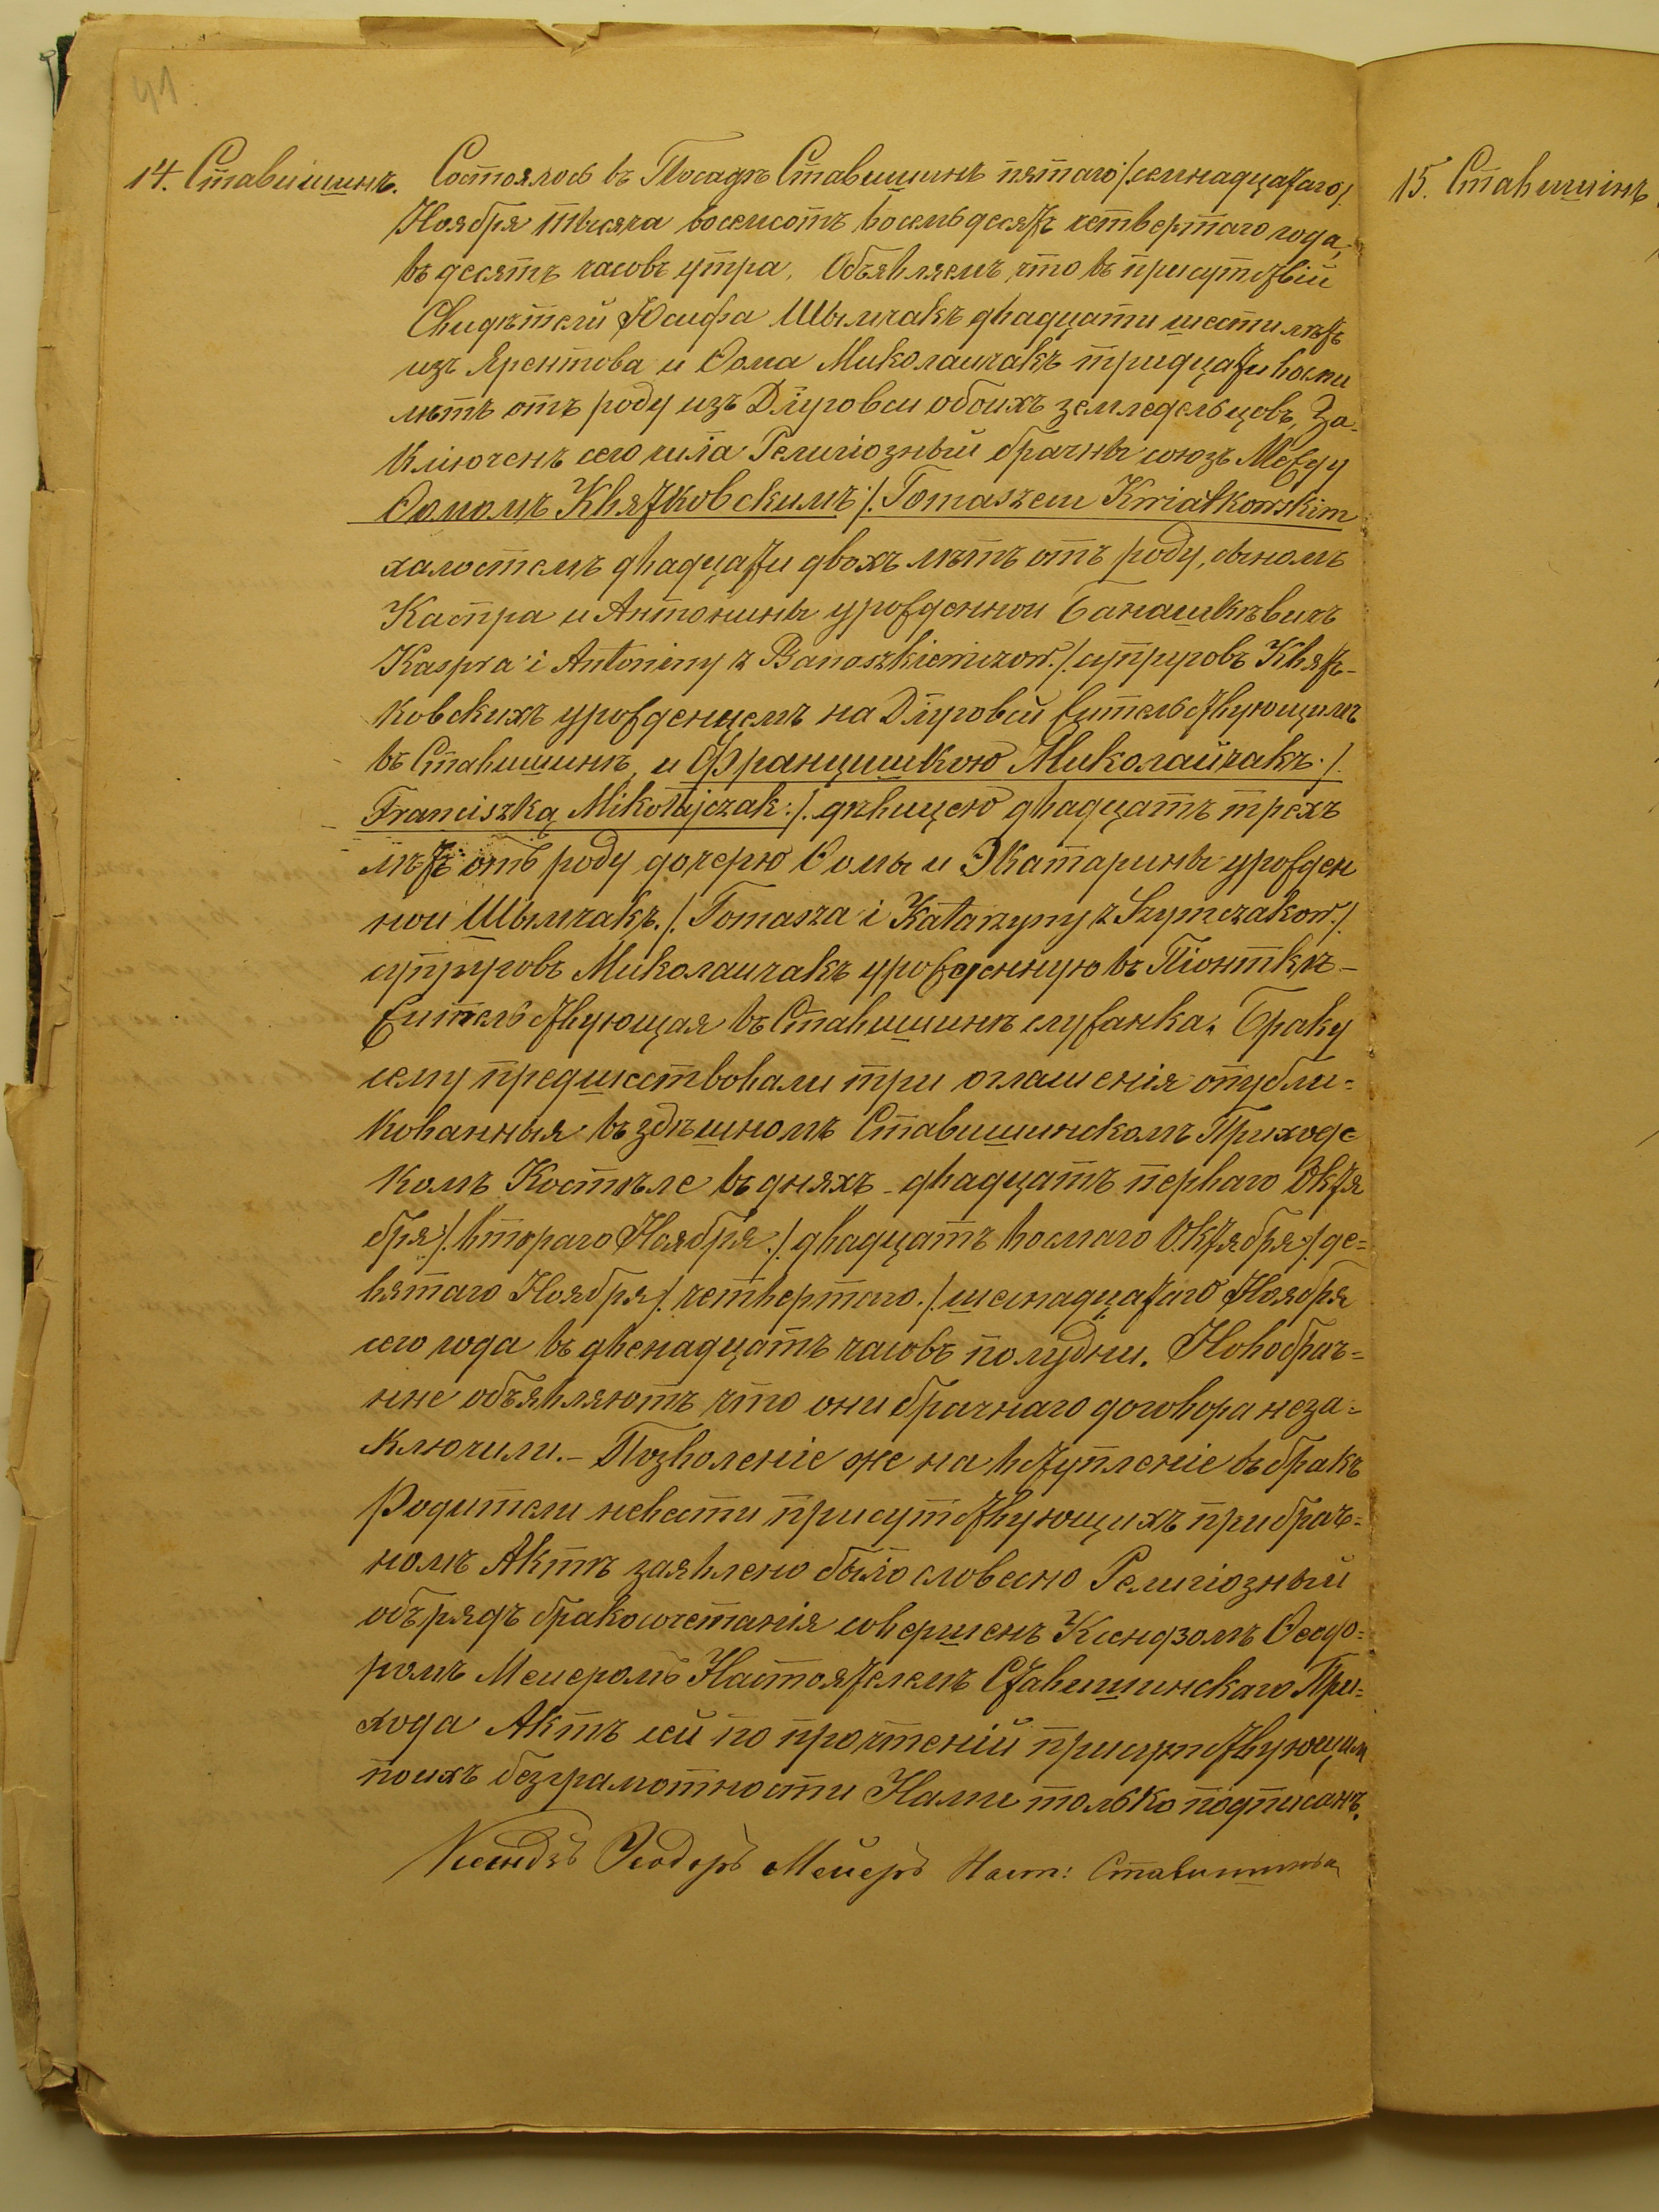 41
14. Ставишинъ. Состоялось въ Посадѣ Ставишинѣ пятаго /:семнадцатаго/:
Ноября тысяча восемсотъ восемьдесятъ четвертаго года,
въ десять часовъ утра. Объявляемъ, что въ присутствіи
Свидѣтели Юсифа Шымчакъ двадцати шести лѣтъ
изъ Ярентова и Ѳома Миколаичакъ тридцати восми
лѣтъ отъ роду изъ Длуговси обоихъ земледельцовъ, За-
ключенъ сего числа Религіозный брачны союзъ Между
Ѳомомъ Квятковскимъ /: Tomaszem Kwiatkowskim
халостемъ двадцати двохъ лѣтъ отъ роду, сыномъ
Каспра и Антонины урожденной Банашкѣвичъ
Kaspra i Antoniny z Banaszkiewiczow./ супруговъ Квят-
ковскихъ урожденцемъ на Длуговси жительствующимъ
въ Ставишинѣ, и Францишкою Миколайчакъ ./.
Franciszką Mikołajczak :/. дѣвицею двадцать трехъ
лѣтъ отъ роду дочерю Ѳомы и Экатарины урожден
ной Шымчакъ./. Tomasza i Katarzyny z Szymczakow./
супруговъ Миколаичакъ урожденную въ Піонткѣ-
жительствующая въ Ставишинѣ служанка. Браку
сему предшествовали три оглашенія опубли=
кованныя въ здѣшномъ Ставишинскомъ Приходс
комъ Костѣле въ дняхъ двадцать перваго Октя
бря /: втораго Ноября ./ двадцать восмаго Октября :/ де=
вятаго Ноября /. четвертаго ./ шеснадцатаго Ноября
сего года въ двенадцать часовъ полудни. Новобрач=
нне объявляютъ что они брачнаго договора неза=
ключили.- Позволеніе же на вступленіе въ бракъ
Родители невести присутствующихъ при брач=
номъ Актѣ заявлено было словесно Религіозный
объ рядъ бракосочетанія совершенъ Ксендзомъ Ѳеодо=
ромъ Меиеромъ Настоятелемъ Ставишинскаго При=
хода Актъ сей по прочтеній присутствующим
поихъ безграмотности Нами только подписанъ.
Ксендзъ Ѳеодоръ Мейеръ Наст: Ставишинска
15. Ставишинъ